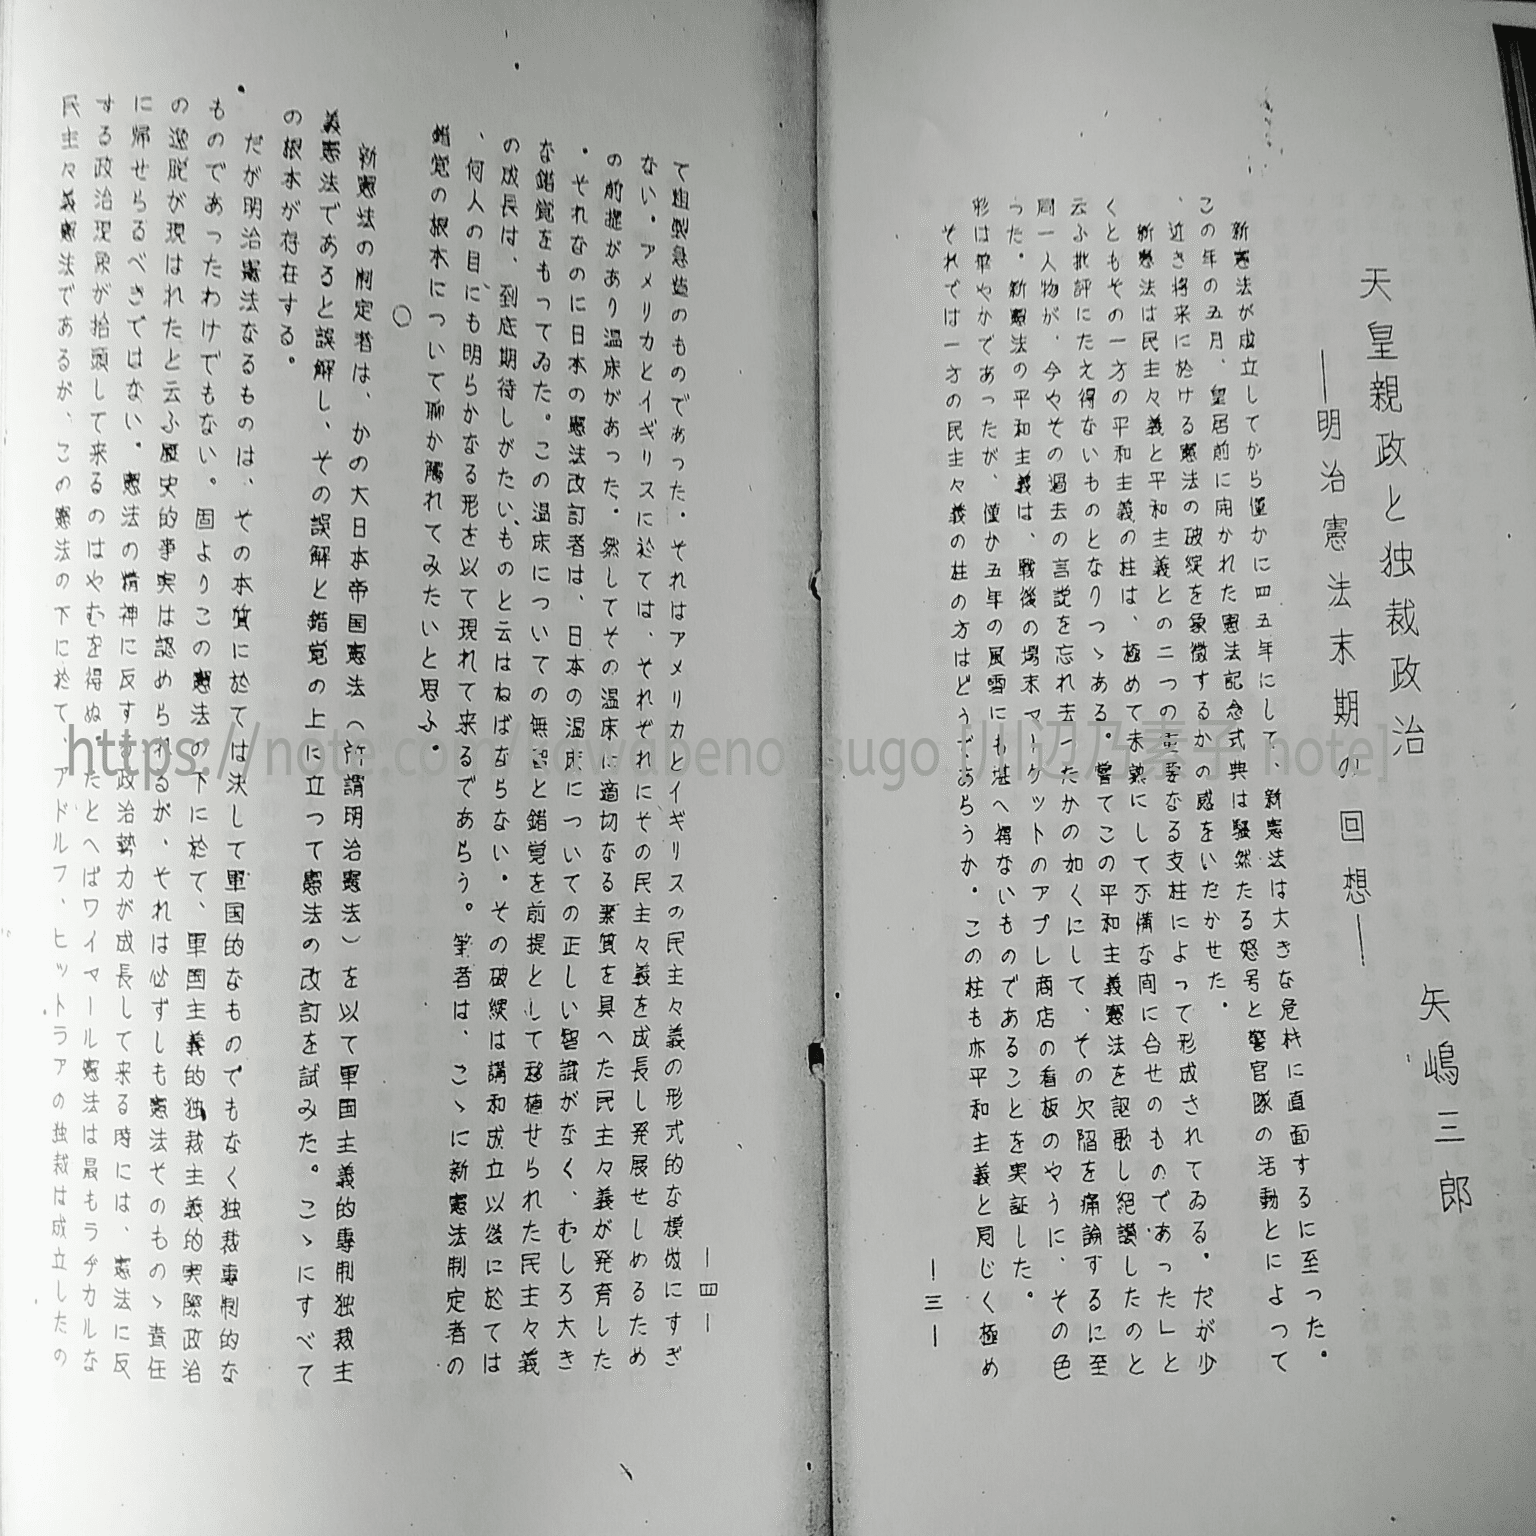 天皇親政と独裁政治
――明治憲法末期の回想――
矢嶋三郎
新憲法が成立してから僅かに四五年にして、新憲法は大きな危机に直面するに至った。
この年の五月、皇居前に開かれた憲法記念式典は騒然たる怒号と警官隊の活動とによって
、近き将来に於ける憲法の破綻を象徴するかの感をいだかせた。
新憲法は民主々義と平和主義との二つの主要なる支柱によって形成されてゐる。だが少
くともその一方の平和主義の柱は、極めて未熟にして不備な間に合せのものであった」と
云ふ批評にたえ得ないものとなりつゝある。嘗てこの平和主義憲法を謳歌し絶讃したのと
同一人物が、今やその過去の言説を忘れ去ったかの如くにして、その欠陥を痛論するに至
った。新憲法の平和主義は、戦後の場末マーケットのアプレ商店の看板のやうに、その色
形は華やかであったが、僅か五年の風雪にも堪へ得ないものであることを実証した。
それでは一方の民主々義の柱の方はどうであらうか。この柱も亦平和主義と同じく極め
―三―
て粗製急造のものであった。それはアメリカとイギリスの民主々義の形式的な模倣にすぎ
ない。アメリカとイギリスに於ては、それぞれにその民主々義を成長し発展せしめるため
の前提があり温床があった。然してその温床に適切なる素質を具へた民主々義が発育した
。それなのに日本の憲法改訂者は、日本の温床についての正しい智識がなく、むしろ大き
な錯覚をもってゐた。この温床についての無智と錯覚を前提として移植せられた民主々義
の成長は、到底期待しがたいものと云はねばならない。その破綻は講和成立以後に於ては
、何人の目にも明らかなる形を以て現れて来るであらう。筆者は、こゝに新憲法制定者の
錯覚の根本について聊か觸れてみたいと思ふ。
○
新憲法の制定者は、かの大日本帝国憲法（所謂明治憲法）を以て軍国主義的専制独裁主
義憲法であると誤解し、その誤解と錯覚の上に立って憲法の改訂を試みた。こゝにすべて
の根本が存在する。
だが明治憲法なるものは、その本質に於ては決して軍国的なものでもなく独裁専制的な
ものであったわけでもない。固よりこの憲法の下に於て、軍国主義的独裁主義的実際政治
の逸脱が現はれたと云ふ歴史的事実は認められるが、それは必ずしも憲法そのものゝ責任
に帰せらるべきではない。憲法の精神に反する政治勢力が成長して来る時には、憲法に反
する政治現象が抬頭して来るのはやむを得ぬ。たとへばワイマール憲法は最もラヂカルな
民主々義憲法であるが、この憲法の下に於て、アドルフ、ヒットラアの独裁は成立したの
―四―
https://note.com/
[川辺乃素子 note]